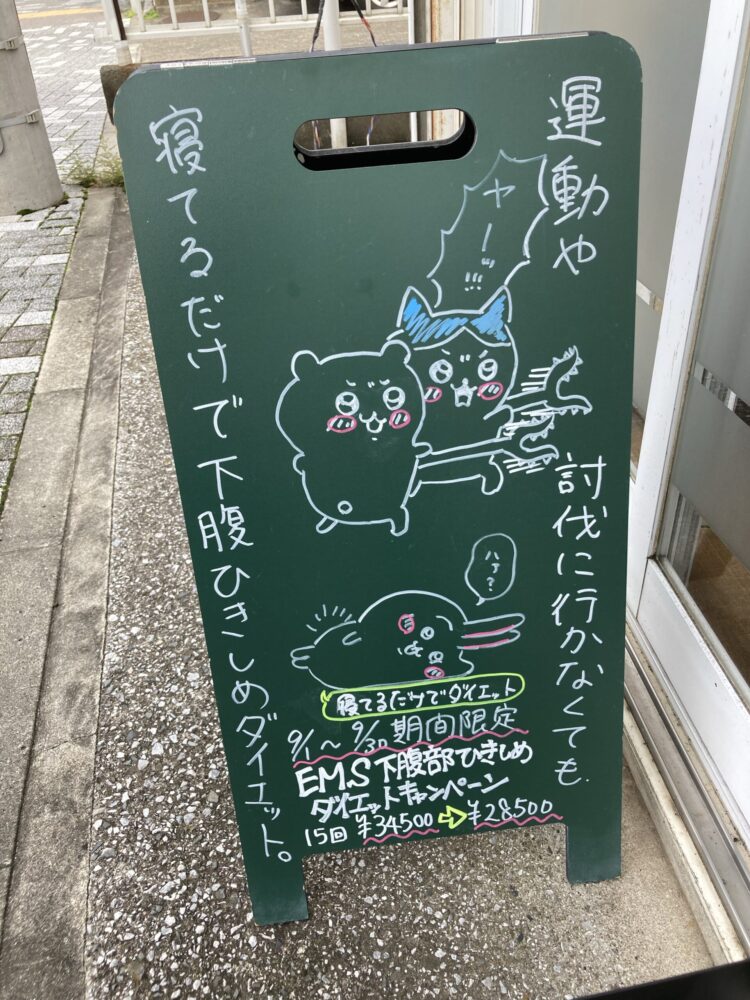 運動や
討伐に行かなくても
寝てるだけで下腹ひきしめダイエット。
ヤーッ!!!
ハァ?
寝てるだけでダイエット
9/1〜9/30期間限定
EMS下腹部ひきしめ
ダイエットキャンペーン
15回 ¥34500 ⇨ ¥28500